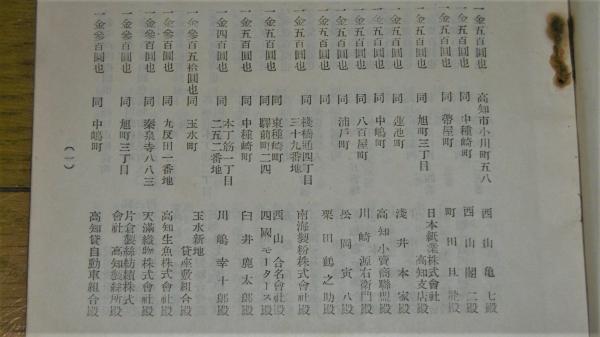 一金五百圓也 高知市小川町五八 西山亀七殿
一金五百圓也 同 中種崎町 西山閣二殿
一金五百圓也 同 帶屋町 町田旦龍殿
一金五百圓也 同 旭町三丁目 日本紙業株式會社高知支店殿
一金五百圓也 同 蓮池町 淺井本家殿
一金五百圓也 同 中嶋町 高知小賣商聯盟殿
一金五百圓也 同 八百屋町 川崎源右衛門殿
一金五百圓也 同 浦戸町 松岡寅八殿
一金五百圓也 同 栗田鶴之助殿
一金五百圓也 同 棧橋通四丁目三十九番地 南海製粉株式會社殿
一金五百圓也 同 東種崎町 西山合名會社殿
一金五百圓也 同 驛前町二四 四國モータース殿
一金五百圓也 同 中種崎町 臼井鹿太郎殿
一金四百圓也 同 本丁筋一丁目二五二番地 川嶋幸十郎殿
一金參百五拾圓也 同 玉水町 玉水新地貸座敷組合殿
一金參百圓也 同 九反田一番地 高知生魚株式會社殿
一金參百圓也 同 秦泉寺八八三 天滿織物株式會社殿
一金參百圓也 同 旭町三丁目 片倉製絲紡績株式會社高知製絲所殿
一金參百圓也 同 中嶋町 高知貸自動車組合殿
(一)